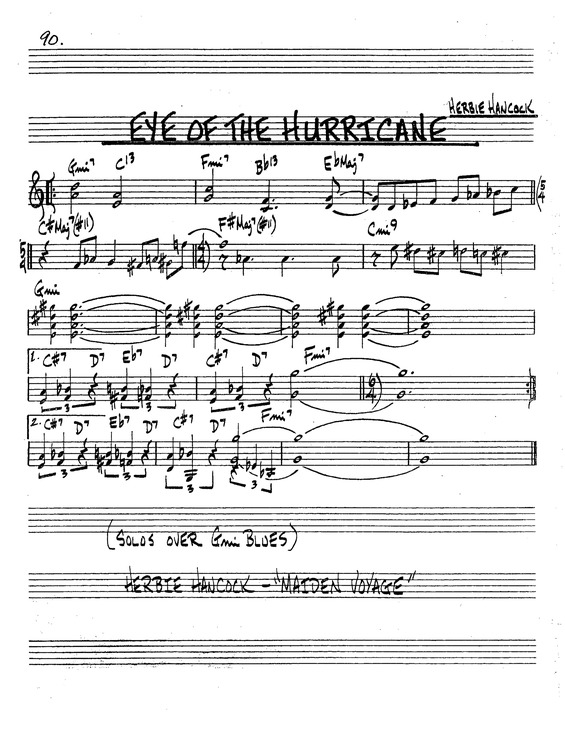 90.
HERBIE HANCOCK
EYE OF THE HURRICANE
Gmi7 C13 Fmi7 Bb13 EbMaj7
5/4
C#Maj7(#11) F#Maj7(#11) Cmi9
5/4 4/4
Gmi
1. C#7 D7 Eb7 D7 C#7 D7 Fmi7
3 3 3 6/4
2. C#7 D7 Eb7 D7 C#7 D7 Fmi7
3 3 3 3
(SOLOS OVER Gmi BLUES)
HERBIE HANCOCK – "MAIDEN VOYAGE"